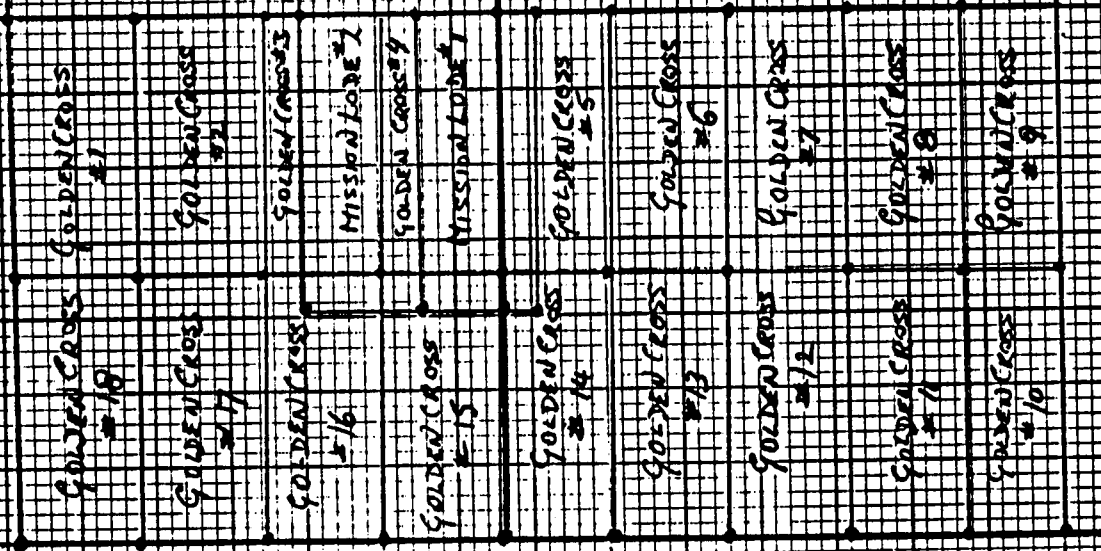 GOLDEN CROSS
#1
GOLDEN CROSS
#2
GOLDEN CROSS #3
MISSION LODE #2
GOLDEN CROSS #4
MISSION LODE #1
GOLDEN CROSS
#5
GOLDEN CROSS
#6
GOLDEN CROSS
#7
GOLDEN CROSS
#8
GOLDEN CROSS
#9
GOLDEN CROSS
#18
GOLDEN CROSS
#17
GOLDEN CROSS
#16
GOLDEN CROSS
#15
GOLDEN CROSS
#14
GOLDEN CROSS
#13
GOLDEN CROSS
#12
GOLDEN CROSS
#11
GOLDEN CROSS
#10